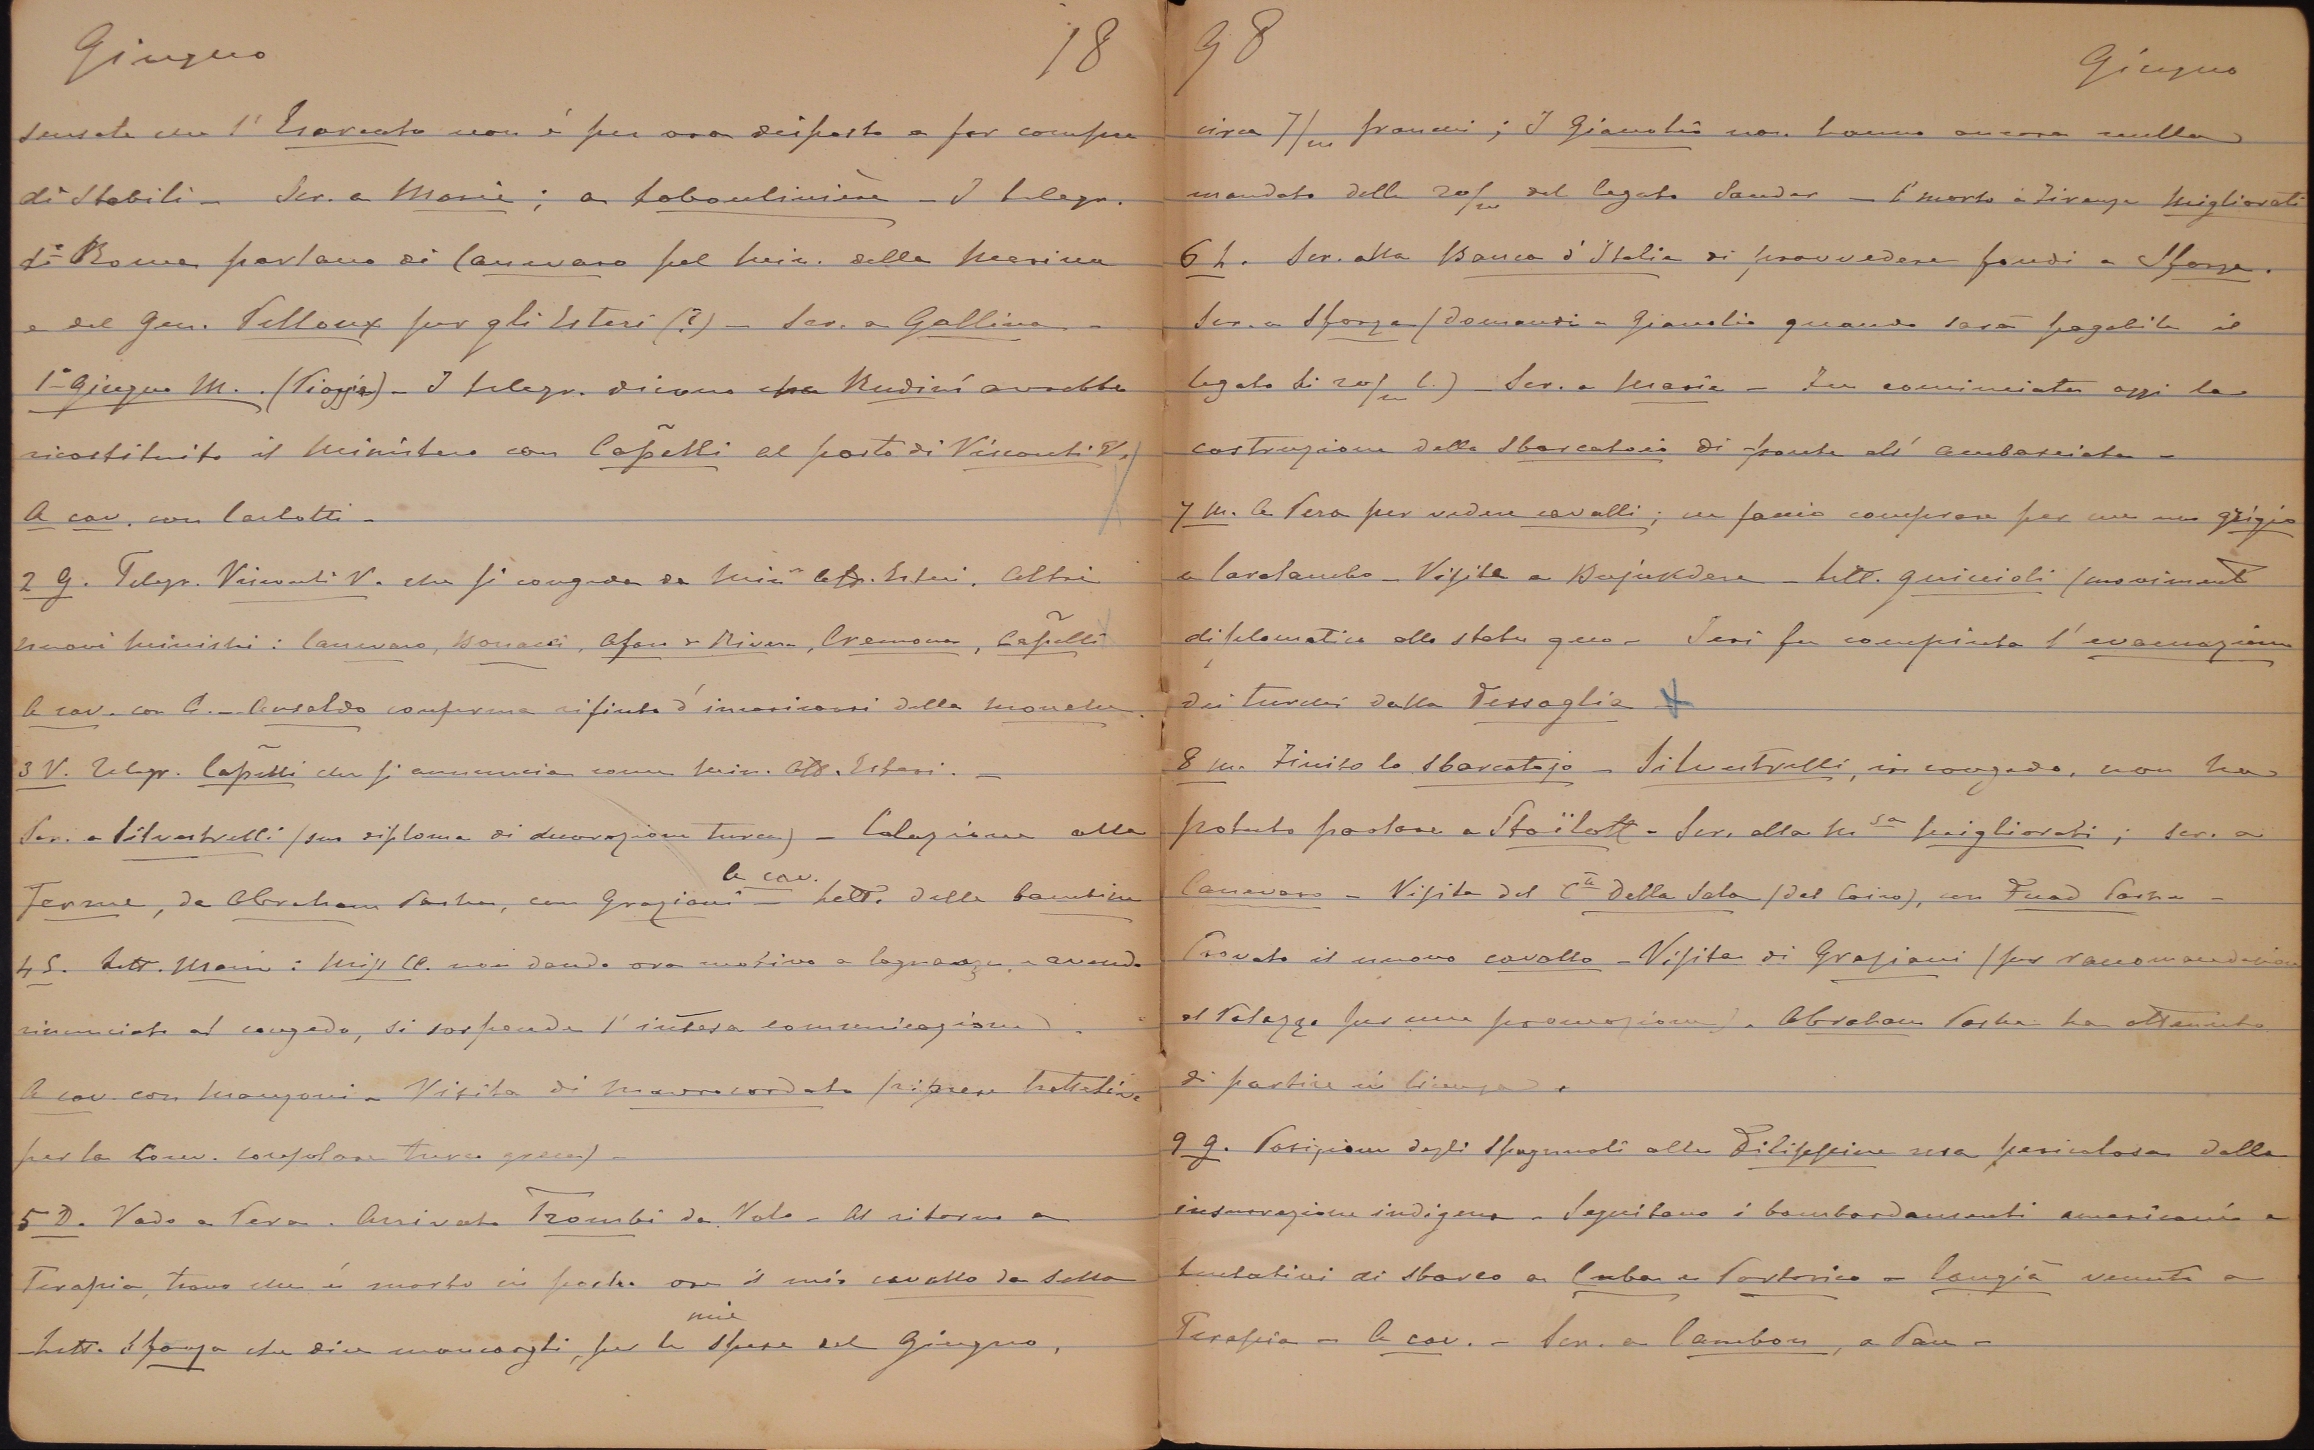 Giugno 18
sensate che l'Esarcato non è per ora disposto a far compre
di stabili - Scr. a Maria; a Laboulinière - I telegr.
di Roma parlano di Canevaro pel Min. della Marina
e del Gen. Pelloux per gli Esteri (?) - Scr. a Gallina -
1° Giugno M. (Pioggia) - I telegr. dicono che Rudinì avrebbe
ricostituito il Ministero con Capelli al posto di Visconti V.
A cav. con Carlotti -
2 G. Telegr. Visconti V. che si congeda da Min° Aff. Esteri. Altri
nuovi ministri: Canevaro, Bonacci, Afan de Rivera, Cremona, Capelli
A cav. con C. - Ansaldo conferma rifiuto d'incaricarsi della
3 V. Telegr. Capelli che si annuncia come Min. Aff. Esteri. -
Scr. a Silvestrelli (suo diploma di decorazione turca) - Colazione alla
Ferme, da Abraham Pasha, con Graziani - A cav. - Lett. delle bambine
4 S. Lett. Maria: Miss Cl. non dando ora motivo a lagnanze, e avendo
rinunciato al congedo, si sospende l'intesa comunicazione.
A cav. con Manzoni - Visita di Mavrocordato (riprese trattative
per la conv. consolare turco greca) -
5 D. Vado a Pera. Arrivato Trombi da Volo - Al ritorno a
Terapia, trovo che è morto in poche ore il mio cavallo da sella
Lett. Sforza che dice mancargli, per le mie spese del Giugno,
98 Giugno
circa 7/m franchi; I Gianotti non hanno ancora nulla
mandato delle 20/m del legato Sauder - È morto a Firenze Migliorati
6 L. Scr. alla Banca d'Italia di provvedere fondi a Sforza.
Scr. a Sforza (domandi a Gianotti quando sarà pagabile il
legato di 20/m l.) - Scr. a Maria - Fu cominciata oggi la
costruzione dello sbarcatoio di fronte all'ambasciata -
7 M. A Pera per vedere cavalli; ne faccio comprare per me uno grigio
a Caralambo - Visita a Bujukdere - Lett. Guiccioli (movimento
diplomatico allo statu quo - Ieri fu compiuta l'evacuazione
dei turchi dalla Tessaglia
8 M. Finito lo sbarcatojo - Silvestrelli, in congedo, non ha
potuto parlare a Stoïloff - Scr. alla M.sa Migliorati; scr. a
Canevaro - Visita del C.te Della Sala (del Cairo), con Fuad Pasha -
Provato il nuovo cavallo - Visita di Graziani (per raccomandazione
al Palazzo per una promozione) - Abraham Pasha ha ottenuto
di partire in licenza.
9 G. Posizione degli Spagnuoli alle Filippine resa pericolosa dalla
insurrezione indigena - Seguitano i bombardamenti americani e
tentativi di sbarco a Cuba e Portorico - Cangià venuto a
Terapia - A cav. - Scr. a Cambon, a Pau -